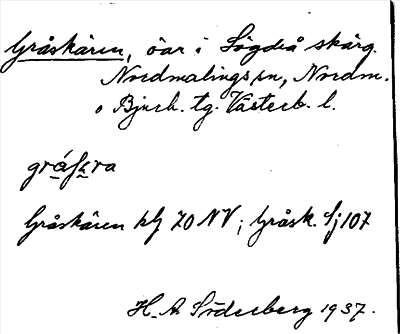 Gråskären, öar i Lögdeå skärg.
Nordmalings sn, Nordm.
o Bjurh. tg. Västerb. l.
gråſkra
Gråskären kbl 70 NV; Gråsk. Sj 107
H. A. Söderberg 1937.